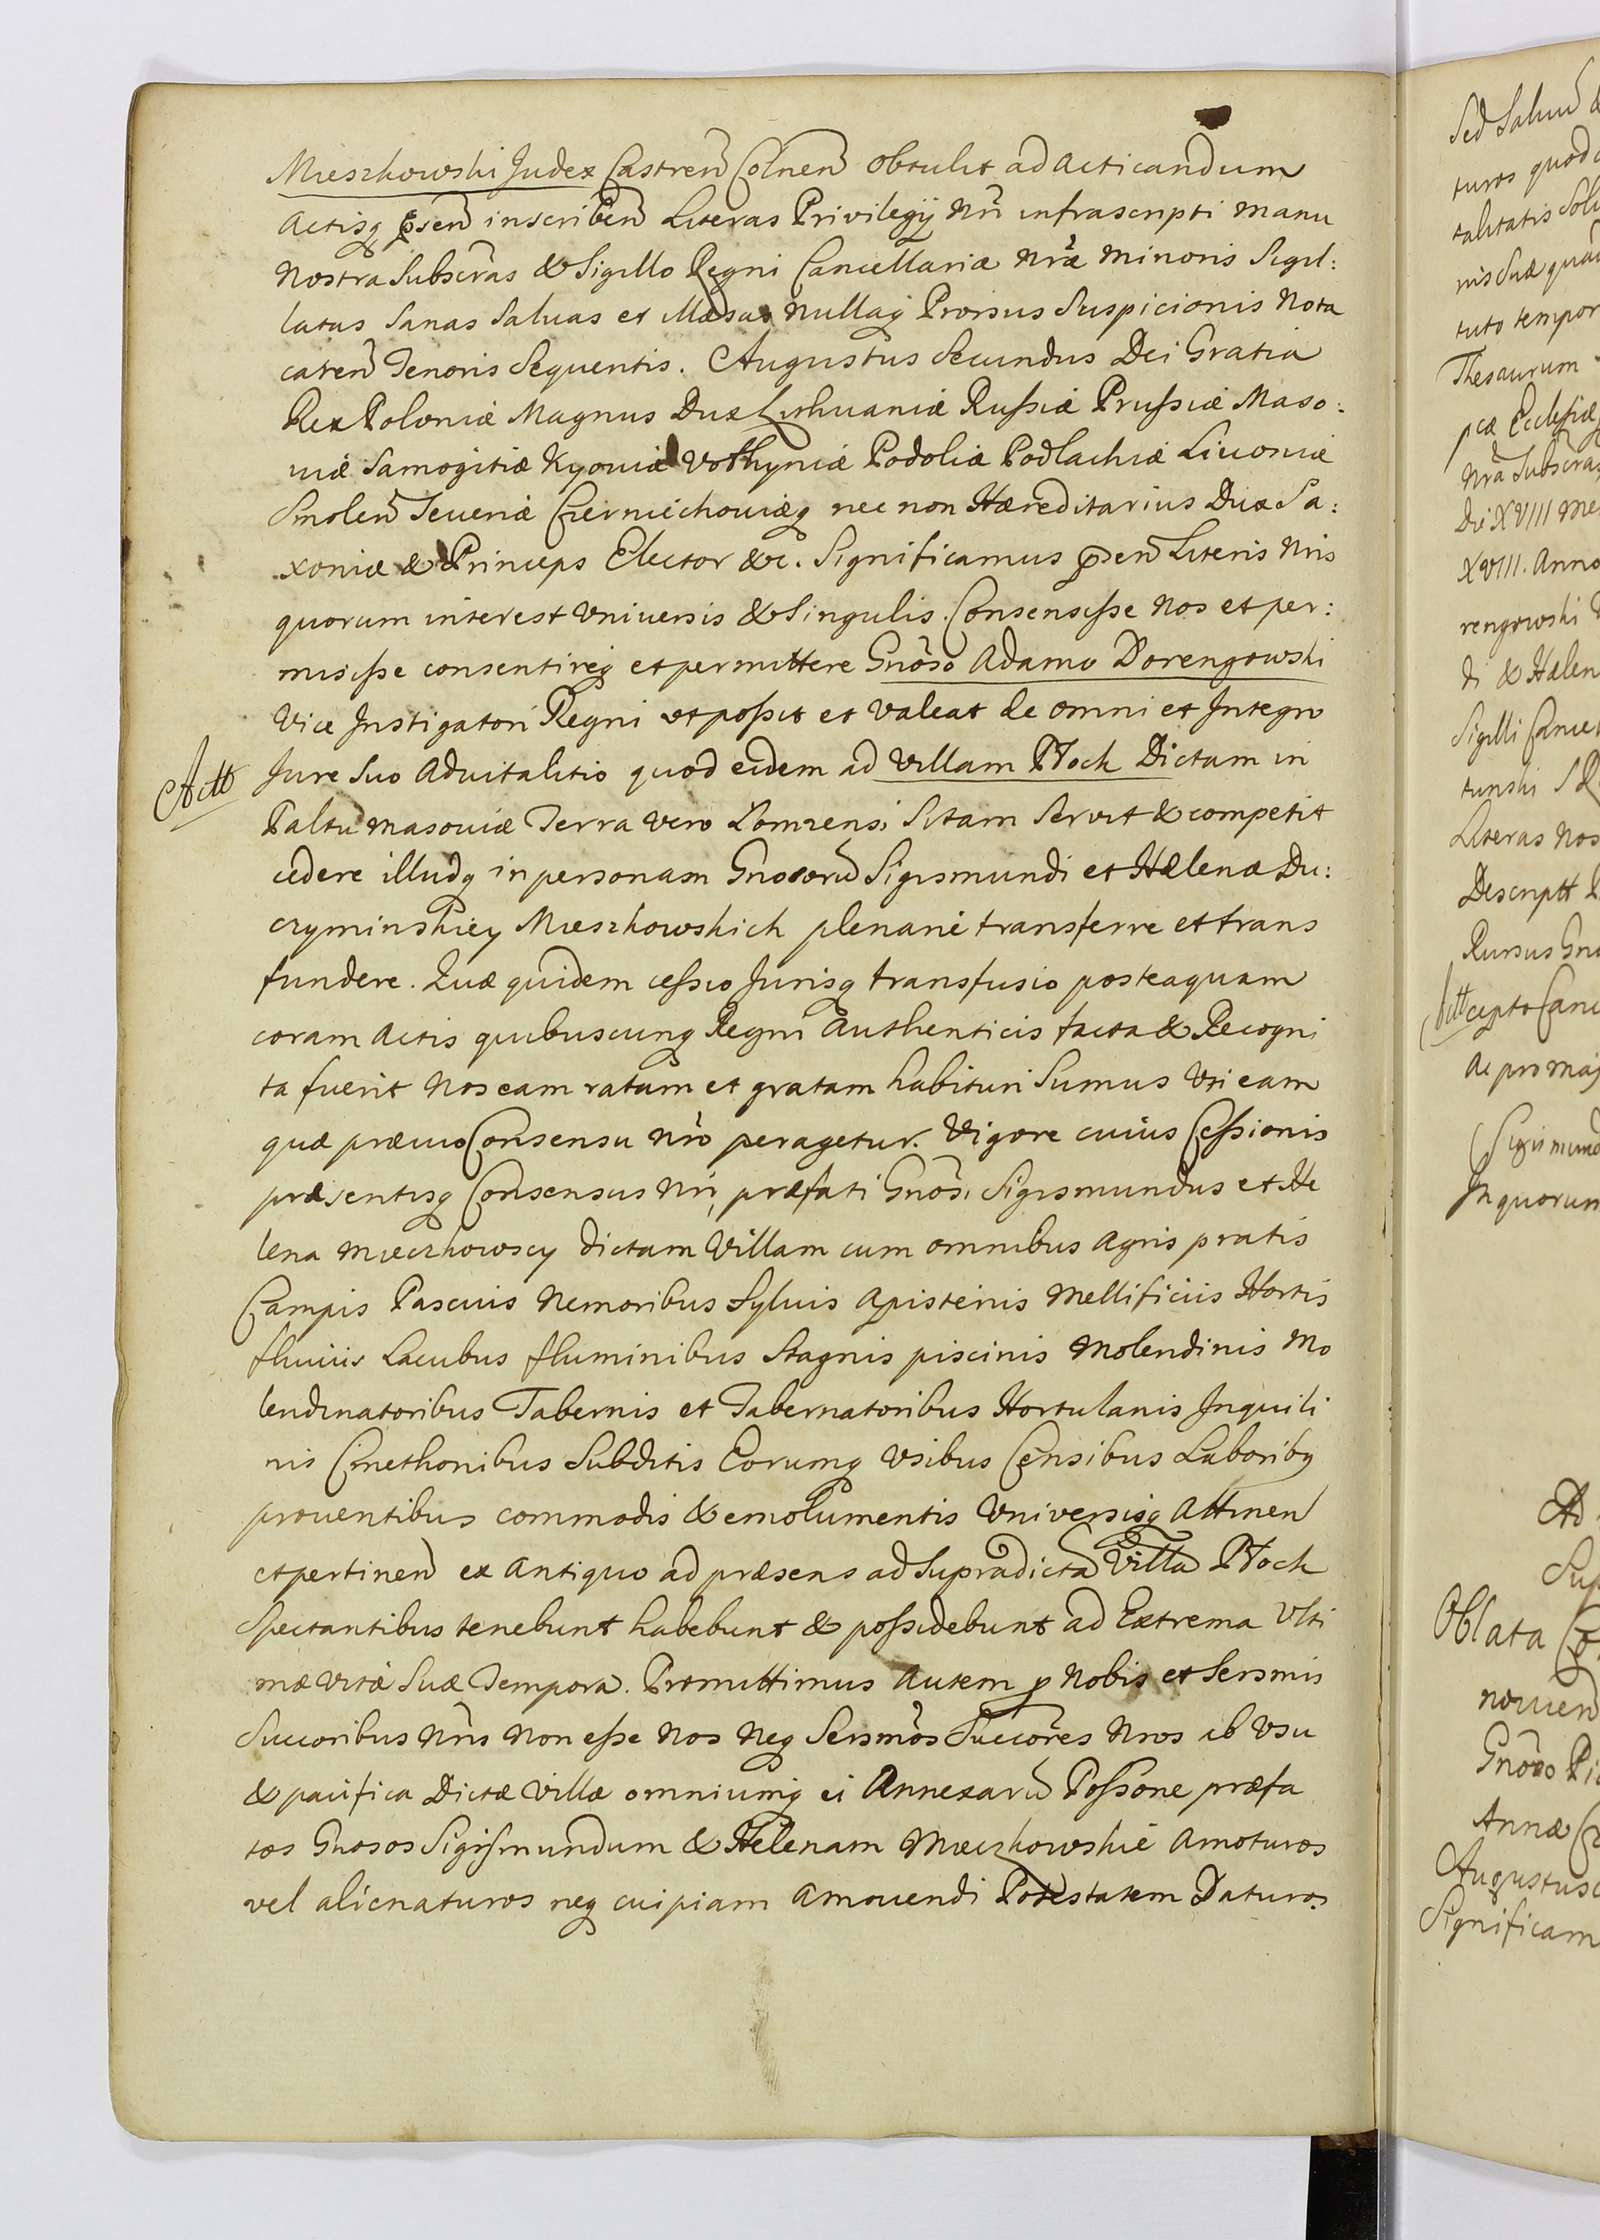 Mieszkowski Judex Castren Colnen obtulit ad acticandum
actisq psen inscriben Literas Privilegij Nri infrascripti manu
Nostra Subscras & Sigillo Regni Cancellariæ Nræ Minoris Sigil:
latas Sanas Saluas et illæsas Nullaq Prorsus Suspicionis Nota
caren Tenoris Sequentis. Augustus Secundus Dei Gratia
Rex Poloniæ Magnus Dux Lithuaniæ Rußiæ Prußiæ Maso:
uiæ Samogitiæ Kyouiæ Volhyniæ Podoliæ Podlachiæ Liuoniæ
Smolen Seueriæ Czerniechouiæq nec non Hæreditarius Dux Sa:
xoniæ & Princeps Elector &c. Significamus psen Literis Nris
quorum interest Vniuersis & Singulis. Consensiße Nos et per:
misiße consentireq et permittere Gnoso Adamo Dorengowski
Vice Instigatori Regni vt poßit et Valeat de omni et Integro
Actt
Jure Suo Aduitalitio quod eidem ad Villam Ptoch Dictam in
Paltu Masouiæ Terra vero Lomzensi Sitam Seruit & competit
cedere illudq in personam Gnosoru Sigismundi et Hælenæ Du:
czyminskiey Mieszkowskich plenarie transferre et trans
fundere. Quæ quidem ceßio Jurisq transfusio posteaquam
coram Actis quibuscunq Regni Authenticis facta & Recogni
ta fuerit Nos eam ratam et gratam habituri Sumus Vti eam
quæ præuio Consensu Nro peragetur. Vigore cuius Ceßionis
præsentisq Consensus Nri præfati Gnosi Sigismundus et He
lena Mieczkowscy dictam Villam cum omnibus Agris pratis
Campis Pascuis Nemoribus Syluis Apisterijs Mellificiis Hortis
fluuiis Lacubus fluminibus Stagnis piscinis Molendinis Mo
lendinatoribus Tabernis et Tabernatoribus Hortulanis Inquili
nis Cmethonibus Subditis Eorumq Vsibus Censibus Laboribq
prouentibus commodis & emolumentis Vniversisq Attinen
et pertinen ex Antiquo ad præsens ad Supradicta Villa Ptoch
Spectantibus tenebunt habebunt & poßidebunt ad Extrema Vlti
mæ vitæ Suæ Tempora. Promittimus Autem p Nobis et Sersmis
Succoribus Nris Non eße Nos Neq Sersmos Succores Nros ab Vsu
& pacifica Dictæ Villæ omniumq ei Annexaru Poßone præfa
tos Gnosos Sigismundum & Helenam Mieczkowskie Amoturos
vel alienaturos neq cuipiam Amouendi Potestatem Daturos.
Sed Saluu
turos quod
talitatis
nis Suæ
tuto tempor
Thesaurum
pcæ Ecclesiæ
Nra Subscras
Die XVIII Me
XVIII. Anno
rengowski
di & Hælen
Sigilli Cancel
tunski S R
Literas Nos
Descriptt
Rursus Gno
Actt
cepto Canc
Ac pro maj
Sigismund
In quorum
Ad
Sup
Oblata
nouen
Gnoso
Annæ
Augustus
Significam